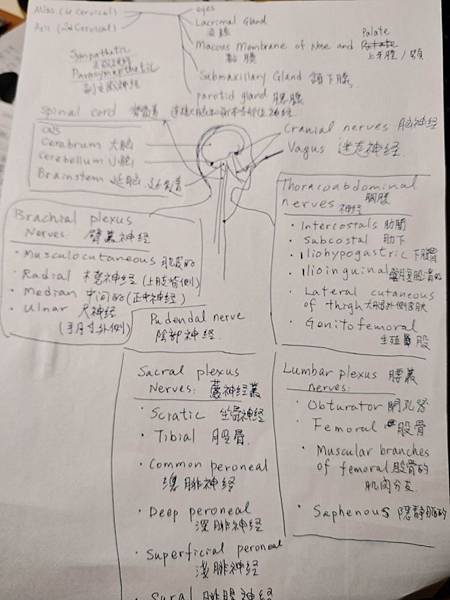 Atlas (1st Cervical)
Axis (2nd Cervical)
eyes
Lacrimal Gland
淚腺
Mucous Membrane of Nose and Palate
黏膜 上牙膛/顎
Submaxillary Gland 頜下腺
parotid gland 腮腺
Sympathetic
交感神經
Parasympathetic
副交感神經
Spinal cord 脊髓
CNS
Cerebrum 大腦
Cerebellum 小腦
Brainstem 延腦
Cranial nerves 腦神経
Vagus 迷走神経
Brachial plexus
Nerves: 臂叢神経
• Musculocutaneous 肌皮的
• Radial 橈神経 (上肢背側)
• Median 中间的 (正中神経)
• Ulnar 尺神経
Pudendal nerve
陰部神経
Thoracoabdominal
nerves 胸腹神経
• Intercostals 肋間
• Subcostal 肋下
• Iliohypogastric
• Ilioinguinal
• Lateral cutaneous
of thigh 大腿外側皮膚
• Genitofemoral
生殖股
Sacral plexus
Nerves: 薦神経叢
• Sciatic 坐骨神経
• Tibial 脛骨
• Common peroneal
總腓神経
• Deep peroneal
深腓神経
• Superficial peroneal
淺腓神経
• Sural 腓腸神経
Lumbar plexus 腰叢
nerves:
• Obturator 閉孔
• Femoral 股骨
• Muscular branches
of femoral 股骨的
肌肉分支
• Saphenous 隱靜脈的